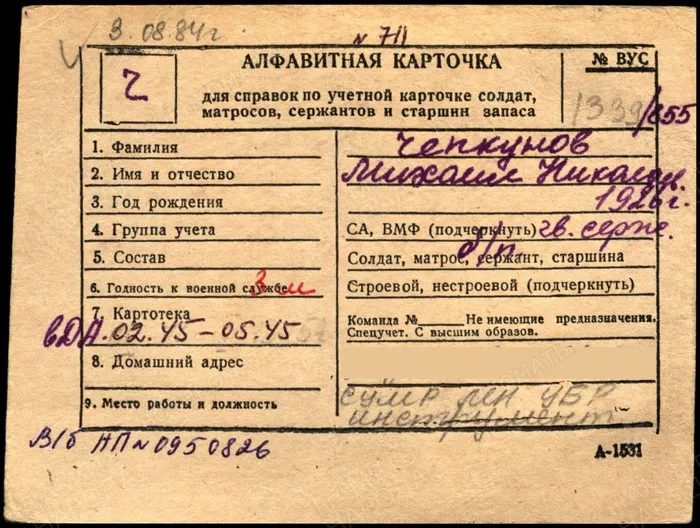 3.08.84г
№ 711
АЛФАВИТНАЯ КАРТОЧКА
№ ВУС
Ч
для справок по учетной карточке солдат,
матросов, сержантов и старшин запаса
1339/855
1. Фамилия
Чепкунов
2. Имя и отчество
Михаил Николаев.
3. Год рождения
1926г.
4. Группа учета
СА, ВМФ (подчеркнуть) гв. серж.
5. Состав
б/п
Солдат, матрос, сержант, старшина
6. Годность к военной службе
Строевой, нестроевой (подчеркнуть)
7. Картотека
Команда № Не имеющие предназначения.
Спецучет. С высшим образов.
вДА.02.45-05.45
8. Домашний адрес
9. Место работы и должность
инструмент
В/б НП№0950826
А-1531